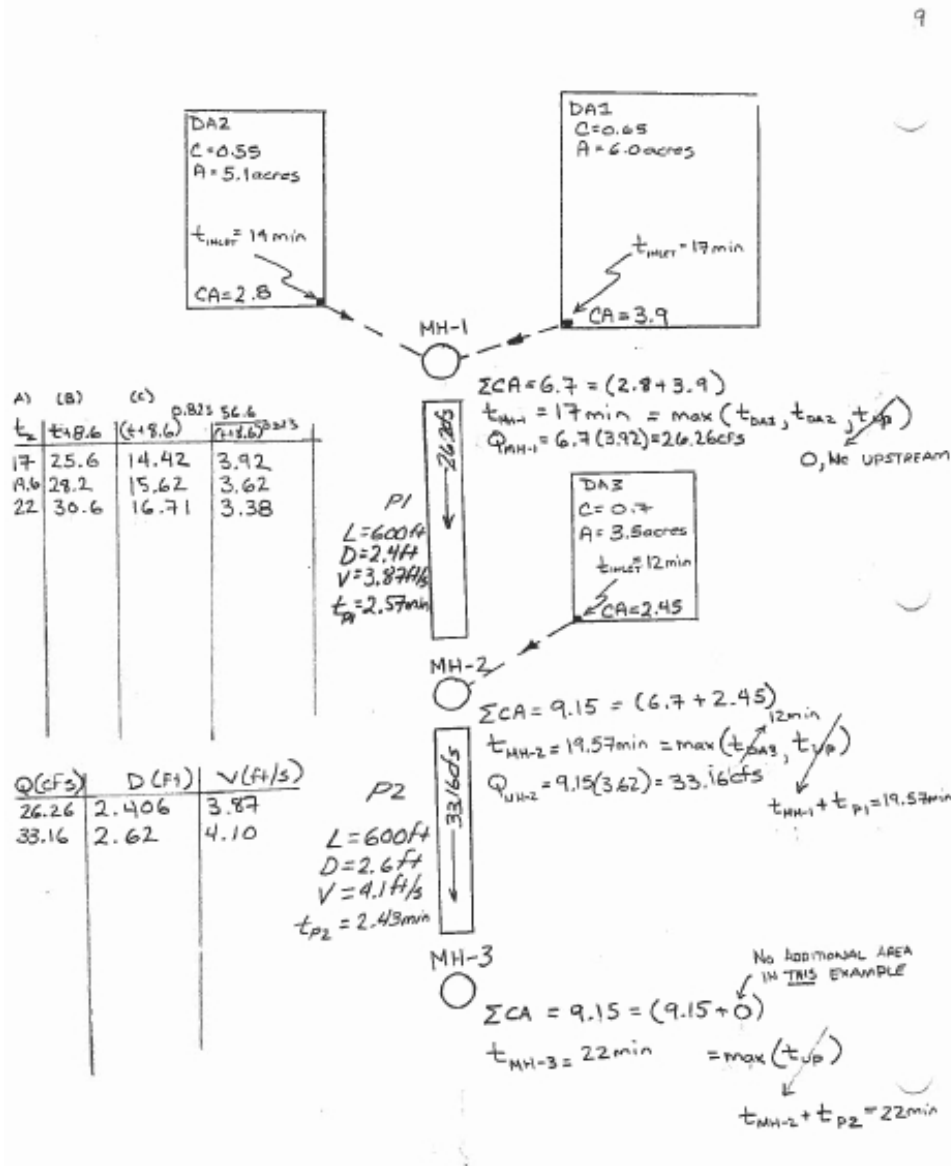 9
DA2
C=0.55
A=5.1acres
t_INLET = 14min
CA=2.8
DA1
C=0.65
A=6.0acres
t_INLET = 17min
CA=3.9
MH-1
ΣCA=6.7 = (2.8+3.9)
t_MH-1 = 17min = max(t_DA1, t_DA2, t_up)
Q_MH-1 = 6.7(3.92)=26.26cfs
0, No UPSTREAM
A) (B) (C)
t_2 t+8.6 (t+8.6)^0.823 56.6/(t+8.6)^0.823
17 25.6 14.42 3.92
19.6 28.2 15.62 3.62
22 30.6 16.71 3.38
P1
L=600ft
D=2.4ft
V=3.87ft/s
t_P1=2.57min
DA3
C=0.7
A=3.5acres
t_INLET=12min
CA=2.45
MH-2
ΣCA=9.15 = (6.7+2.45)
12min
t_MH-2=19.57min =max(t_DA3, t_up)
Q_MH-2=9.15(3.62)=33.16cfs
t_MH-1+t_P1=19.57min
Q(cfs) D(Ft) V(ft/s)
26.26 2.406 3.87
33.16 2.62 4.10
P2
33.16cfs
L=600ft
D=2.6ft
V=4.1ft/s
t_P2=2.43min
MH-3
No ADDITIONAL AREA
IN THIS EXAMPLE
ΣCA = 9.15=(9.15+0)
t_MH-3=22min =max(t_up)
t_MH-2+t_P2=22min